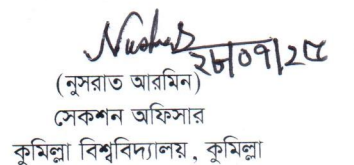 ২৮/০৭/২৫
(নুসরাত আরমিন)
সেকশন অফিসার
কুমিল্লা বিশ্ববিদ্যালয়, কুমিল্লা